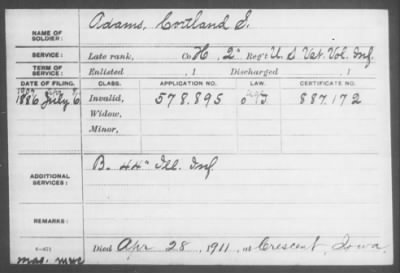 NAME OF SOLDIER: Adams, Cortland S.
SERVICE: Late rank, Co. H, 2" Reg't U S Vet. Vol. Inf.
TERM OF SERVICE: Enlisted , 1 Discharged , 1
DATE OF FILING. CLASS. APPLICATION NO. LAW. CERTIFICATE NO.
1886 July 6 Invalid, 578.895 887.172
Widow,
Minor,
ADDITIONAL SERVICES: B. 44" Ill. Inf.
REMARKS:
Died Apr 28, 1911, at Crescent, Iowa